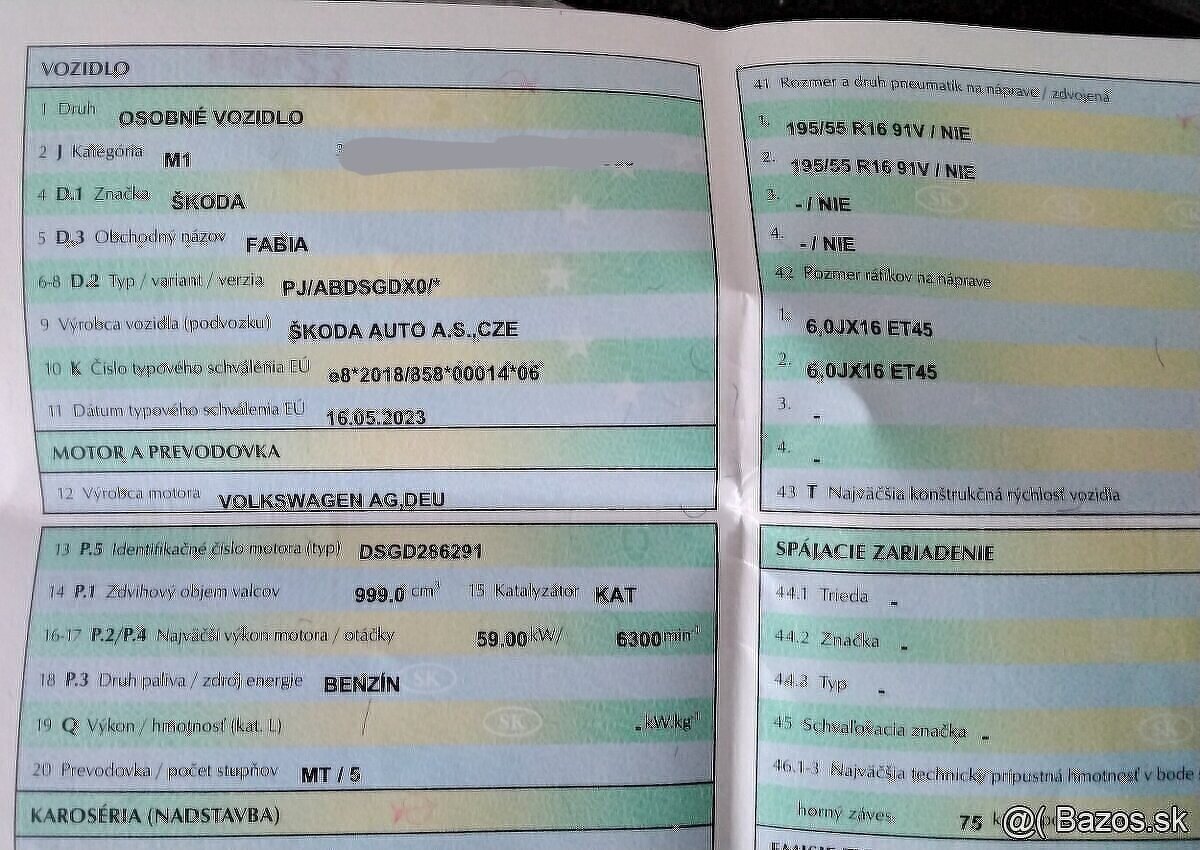 VOZIDLO
1 Druh OSOBNÉ VOZIDLO
2 J Kategória M1
4 D.1 Značka ŠKODA
5 D.3 Obchodný názov FABIA
6-8 D.2 Typ / variant / verzia PJ/ABDSGDX0/*
9 Výrobca vozidla (podvozku) ŠKODA AUTO A.S.,CZE
10 K Číslo typového schválenia EÚ e8*2018/858*00014*06
11 Dátum typového schválenia EÚ 16.05.2023
MOTOR A PREVODOVKA
12 Výrobca motora VOLKSWAGEN AG,DEU
13 P.5 Identifikačné číslo motora (typ) DSGD286291
14 P.1 Zdvihový objem valcov 999.0 cm³ 15 Katalyzátor KAT
16-17 P.2/P.4 Najväčší výkon motora / otáčky 59.00 kW/ 6300 min⁻¹
18 P.3 Druh paliva / zdroj energie BENZÍN
SK
19 Q Výkon / hmotnosť (kat. L) - kW/kg⁻¹
SK
20 Prevodovka / počet stupňov MT / 5
KAROSÉRIA (NADSTAVBA)
41 Rozmer a druh pneumatík na náprave / zdvojená
1. 195/55 R16 91V / NIE
2. 195/55 R16 91V / NIE
3. - / NIE
SK
4. - / NIE
42 Rozmer ráfikov na náprave
1. 6,0JX16 ET45
2. 6,0JX16 ET45
3. -
4. -
43 T Najväčšia konštrukčná rýchlosť vozidla
SPÁJACIE ZARIADENIE
44.1 Trieda -
44.2 Značka -
44.3 Typ -
45 Schvaľovacia značka -
46.1-3 Najväčšia technicky prípustná hmotnosť v bode
horný záves: 75
@( Bazos.sk